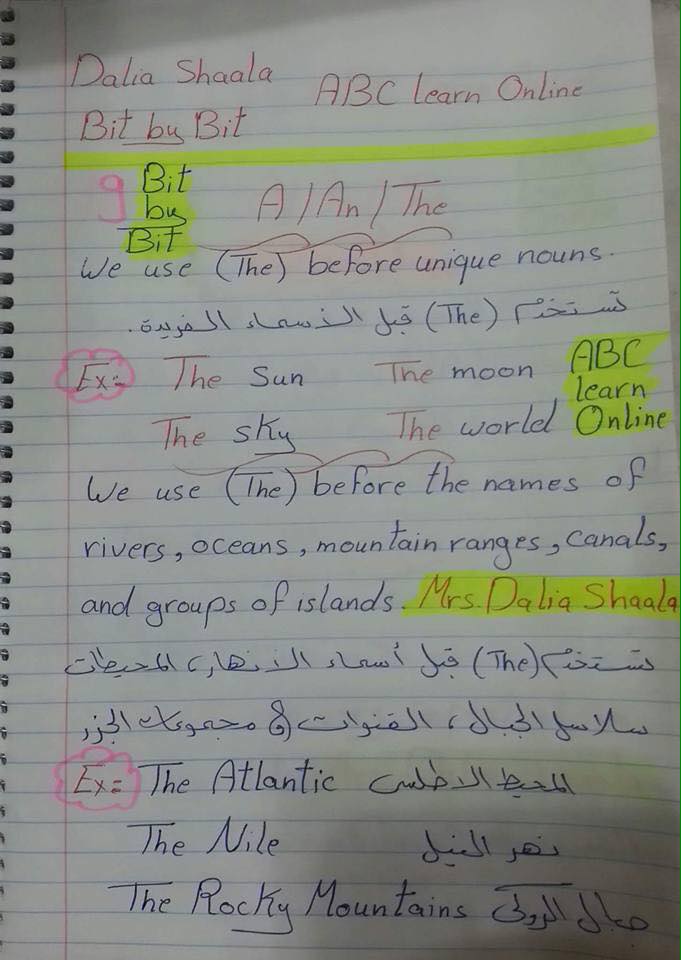 Dalia Shaala ABC learn Online
Bit by Bit
9 Bit by Bit A/An/The
We use (The) before unique nouns.
تستخدم (The) قبل الأسماء الفريدة.
Ex= The Sun The moon ABC
learn
The sky The world Online
We use (The) before the names of
rivers, oceans, mountain ranges, canals,
and groups of islands. Mrs. Dalia Shaala
تستخدم (The) قبل أسماء الأنهار، المحيطات
سلاسل الجبال، القنوات و مجموعات الجزر
Ex= The Atlantic المحيط الاطلسى
The Nile نهر النيل
The Rocky Mountains جبال الروكى